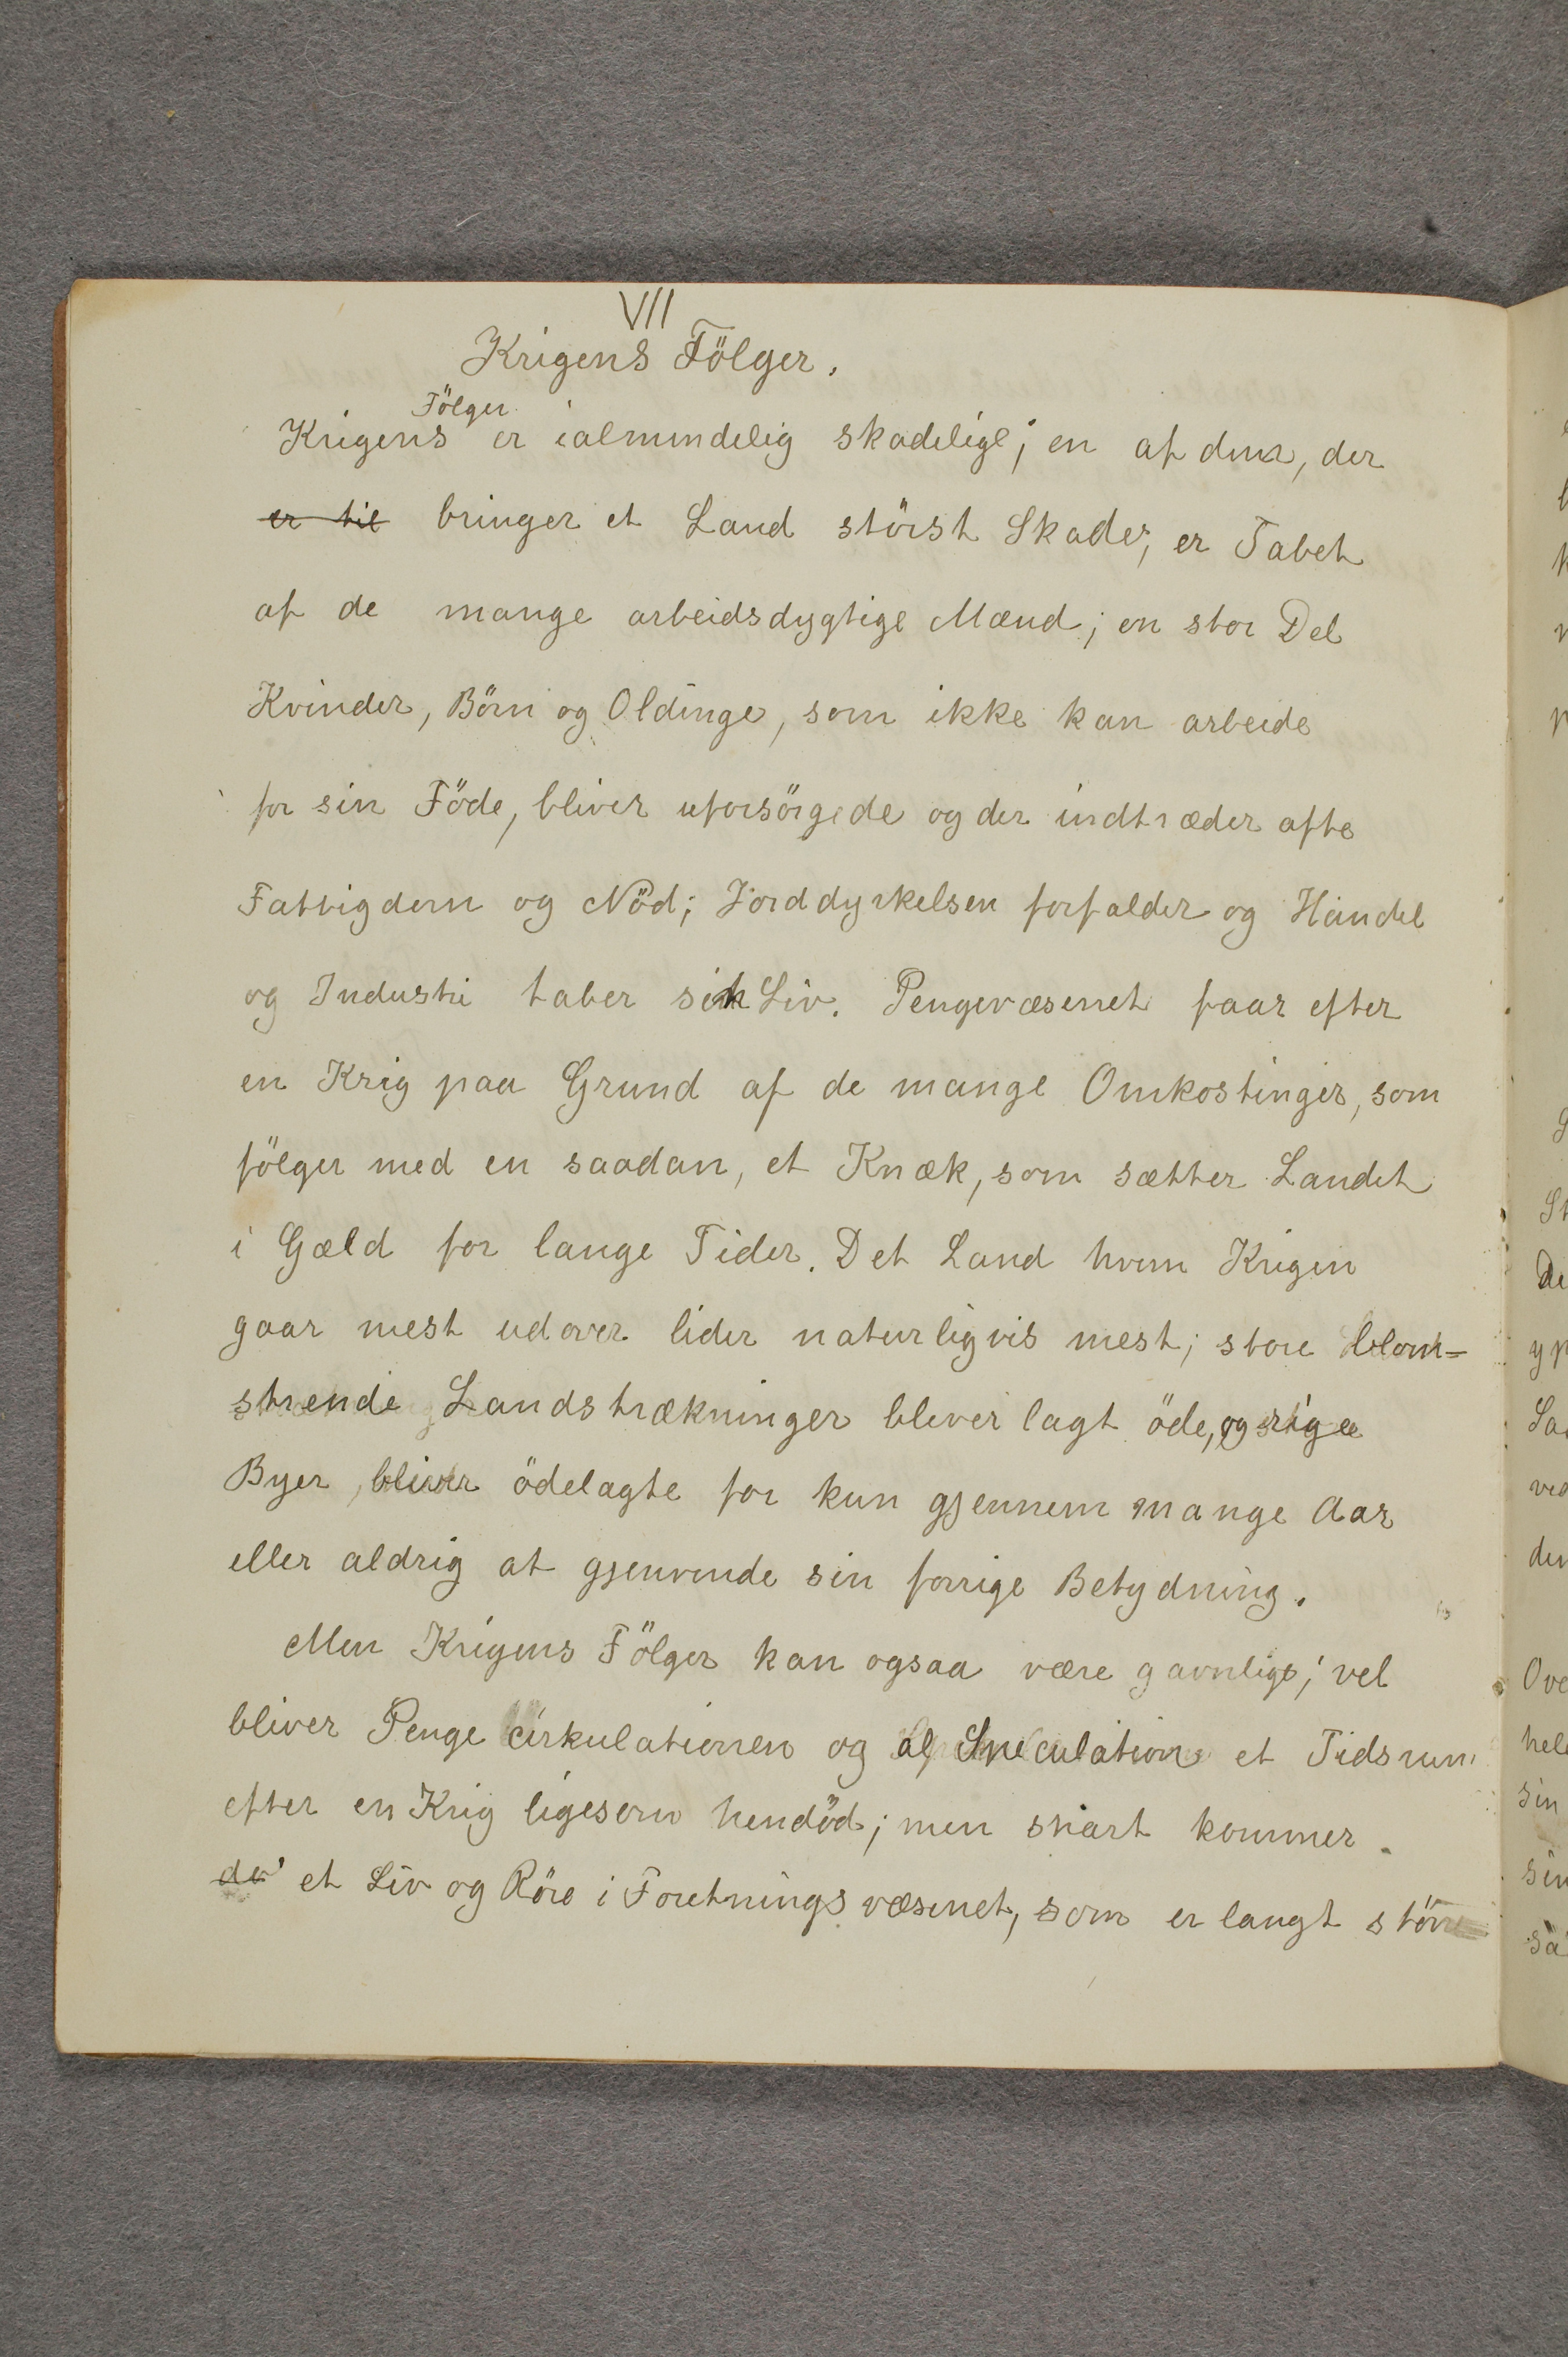 VII
Krigens Fölger.
Fölger
Krigens er ialmindelig skadelige; en af dem, der
er til bringer et Land störst Skade, er Tabet
af de mange arbeidsdygtige Mænd; en stor Del
Kvinder, Börn og Oldinge, som ikke kan arbeide
for sin Föde, bliver uforsörgede og der indtræder ofte
Fattigdom og Nöd; Jorddyrkelsen forfalder og Handel
og Industri taber sit Liv. Pengevæsenet faar efter
en Krig paa Grund af de mange Omkostinger, som
fölger med en saadan, et Knæk, som sætter Landet
i Gæld for lange Tider. Det Land hvem Krigen
gaar mest udover lider naturligvis mest; store blom=
strende Landstrækninger bliver lagt öde, og rige
Byer, bliver ödelagte for kun gjennem mange Aar
eller aldrig at gjenvinde sin forrige Betydning.
Men Krigens Fölger kan ogsaa være gavnlige; vel
bliver Penge cirkulationen og al Speculation et Tidsrum
efter en Krig ligesom hendöd; men snart kommer
de' et Liv og Röre i Foretningsvæsenet, som er langt större